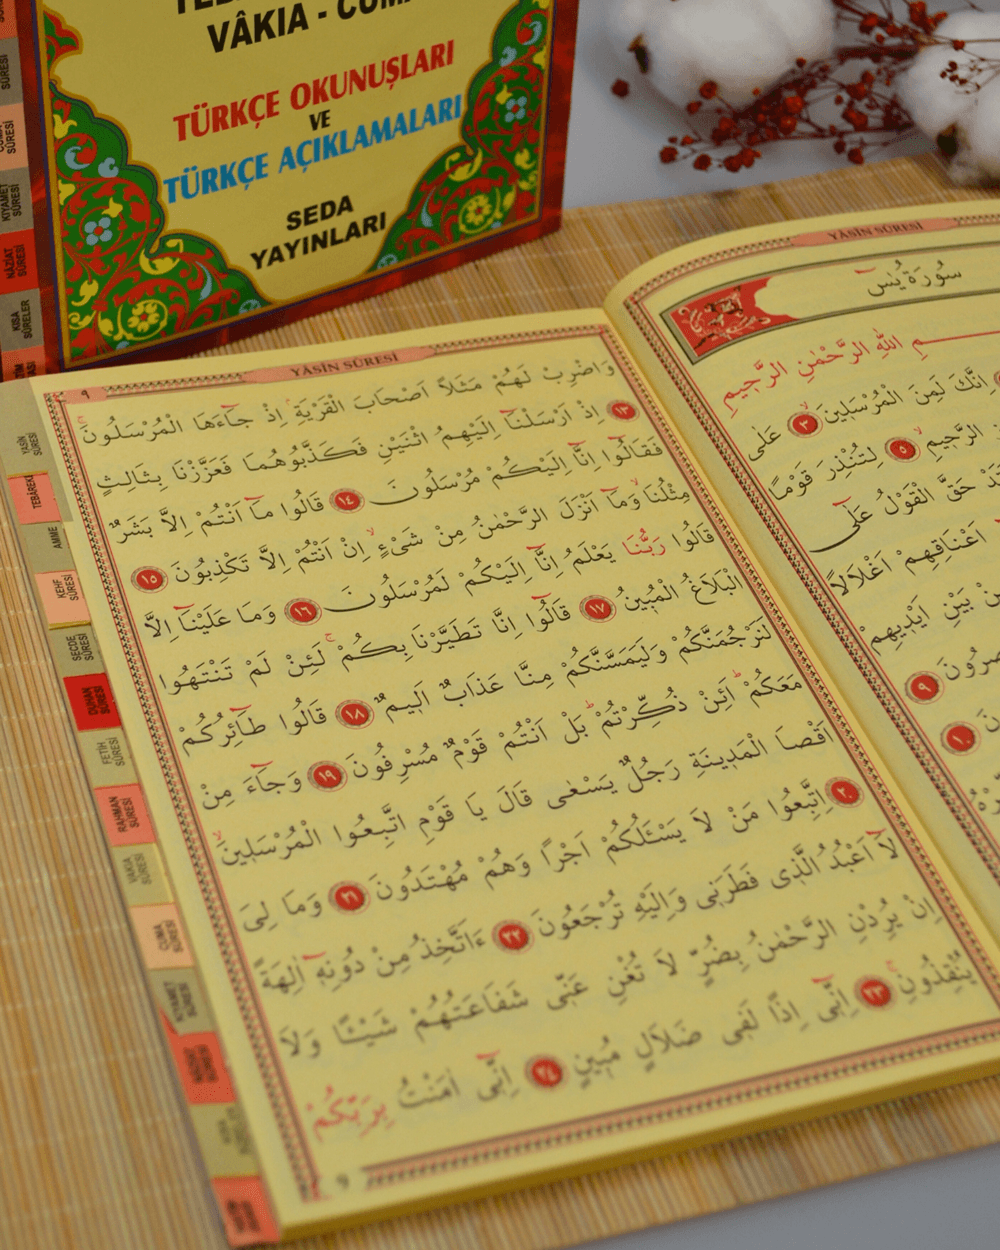 VÂKIA - CUMA
TÜRKÇE OKUNUŞLARI
VE
TÜRKÇE AÇIKLAMALARI
SEDA
YAYINLARI
KIYAMET SÛRESİ
NÂZİAT SÛRESİ
KISA SÛRELER
YÂSİN SÛRESİ
سُورَةُ يٰسٓ
ـمِ اللّٰهِ الرَّحْمٰنِ الرَّحٖيمِ
اِنَّكَ لَمِنَ الْمُرْسَلٖينَۙ ﴿٣﴾ عَلٰى
الرَّحٖيمِۙ ﴿٥﴾ لِتُنْذِرَ قَوْمًا
حَقَّ الْقَوْلُ عَلٰٓى
اَعْنَاقِهِمْ اَغْلَالًا
بَيْنِ اَيْدٖيهِمْ
﴿٩﴾
﴿١٠﴾
YÂSİN SÛRESİ
٩
وَاضْرِبْ لَهُمْ مَثَلًا اَصْحَابَ الْقَرْيَةِۘ اِذْ جَٓاءَهَا الْمُرْسَلُونَۚ
﴿١٣﴾ اِذْ اَرْسَلْنَٓا اِلَيْهِمُ اثْنَيْنِ فَكَذَّبُوهُمَا فَعَزَّزْنَا بِثَالِثٍ
فَقَالُٓوا اِنَّٓا اِلَيْكُمْ مُرْسَلُونَ ﴿١٤﴾ قَالُوا مَٓا اَنْتُمْ اِلَّا بَشَرٌ
مِثْلُنَاۙ وَمَٓا اَنْزَلَ الرَّحْمٰنُ مِنْ شَیْءٍۙ اِنْ اَنْتُمْ اِلَّا تَكْذِبُونَ ﴿١٥﴾
قَالُوا رَبُّنَا يَعْلَمُ اِنَّٓا اِلَيْكُمْ لَمُرْسَلُونَ ﴿١٦﴾ وَمَا عَلَيْنَٓا اِلَّا
الْبَلَاغُ الْمُبٖينُ ﴿١٧﴾ قَالُٓوا اِنَّا تَطَيَّرْنَا بِكُمْۚ لَئِنْ لَمْ تَنْتَهُوا
لَنَرْجُمَنَّكُمْ وَلَيَمَسَّنَّكُمْ مِنَّا عَذَابٌ اَلٖيمٌ ﴿١٨﴾ قَالُوا طَٓائِرُكُمْ
مَعَكُمْۜ اَئِنْ ذُكِّرْتُمْۜ بَلْ اَنْتُمْ قَوْمٌ مُسْرِفُونَ ﴿١٩﴾ وَجَٓاءَ مِنْ
اَقْصَا الْمَدٖينَةِ رَجُلٌ يَسْعٰى قَالَ يَا قَوْمِ اتَّبِعُوا الْمُرْسَلٖينَۙ
﴿٢٠﴾ اِتَّبِعُوا مَنْ لَا يَسْـَٔلُكُمْ اَجْرًا وَهُمْ مُهْتَدُونَ ﴿٢١﴾ وَمَا لِیَ
لَٓا اَعْبُدُ الَّذٖى فَطَرَنٖى وَاِلَيْهِ تُرْجَعُونَ ﴿٢٢﴾ ءَاَتَّخِذُ مِنْ دُونِهٖٓ اٰلِهَةً
اِنْ يُرِدْنِ الرَّحْمٰنُ بِضُرٍّ لَا تُغْنِ عَنّٖى شَفَاعَتُهُمْ شَيْـًٔا وَلَا
يُنْقِذُونِۚ ﴿٢٣﴾ اِنّٖٓى اِذًا لَفٖى ضَلَالٍ مُبٖينٍ ﴿٢٤﴾ اِنّٖٓى اٰمَنْتُ بِرَبِّكُمْ
٩
YÂSİN SÛRESİ
TEBÂREKE
AMME
KEHF SÛRESİ
SECDE SÛRESİ
DUHAN SÛRESİ
FETİH SÛRESİ
RAHMAN SÛRESİ
VAKIA SÛRESİ
CUMA SÛRESİ
KIYAMET SÛRESİ